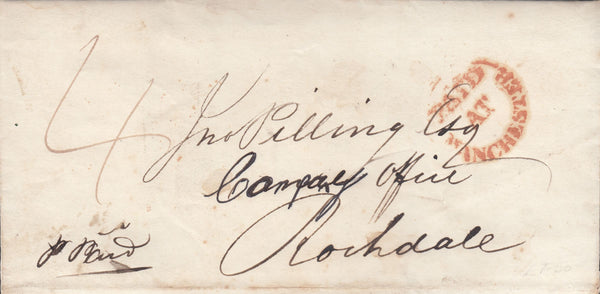 4
PAID
AT
MANCHESTER
Jno Pilling Esq
Company Office
Rochdale
p Paid